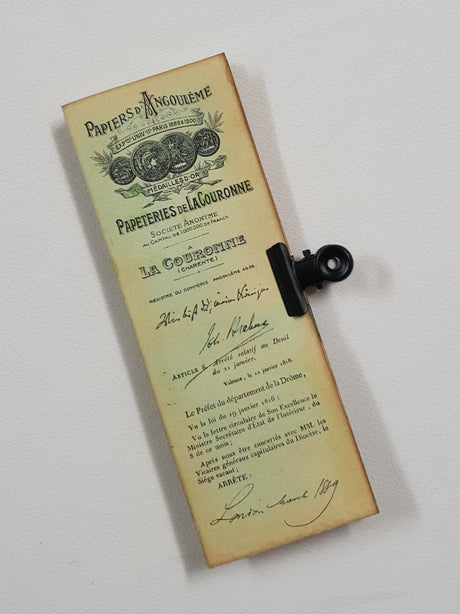 PAPIERS D'ANGOULÊME
EXPON UNIVLLES PARIS 1889 & 1900
MÉDAILLES D'OR
PAPETERIES DE LA COURONNE
SOCIÉTÉ ANONYME
AU CAPITAL DE 1.000.000 DE FRANCS
A
LA COURONNE
(CHARENTE)
REGISTRE DU COMMERCE ANGOULÊME
Joh. Brahms
ARTICLE 6. Arrêté relatif au Deuil
du 21 janvier.
Valence, le 12 janvier 1818.
Le Préfet du département de la Drôme,
Vu la loi du 19 janvier 1816;
Vu la lettre circulaire de Son Excellence le
Ministre Secrétaire d'État de l'Intérieur, du
8 de ce mois;
Après nous être concertés avec MM. les
Vicaires généraux capitulaires du Diocèse, le
Siége vacant;
ARRÊTE:
London March